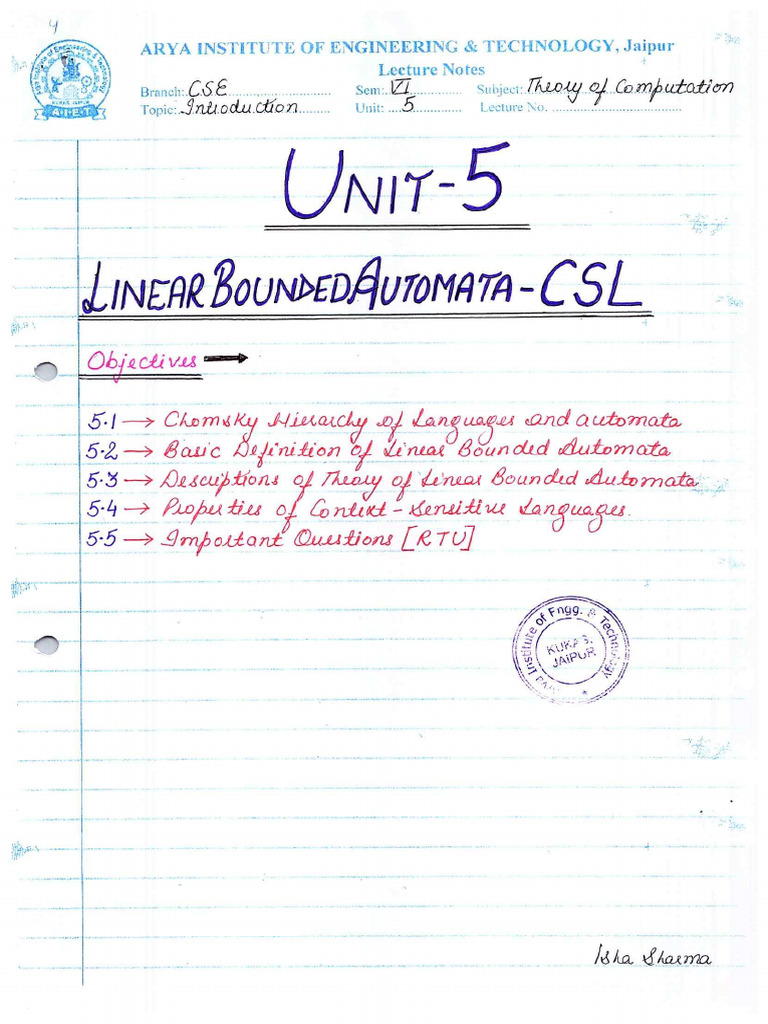 4
ARYA INSTITUTE OF ENGINEERING & TECHNOLOGY, Jaipur
Lecture Notes
Branch: CSE Sem: VI Subject: Theory of Computation
Topic: Introduction Unit: 5 Lecture No.
UNIT-5
LINEAR BOUNDED AUTOMATA - CSL
Objectives →
5.1 → Chomsky Hierarchy of Languages and automata
5.2 → Basic Definition of Linear Bounded Automata
5.3 → Descriptions of Theory of Linear Bounded Automata
5.4 → Properties of Context-Sensitive Languages.
5.5 → Important Questions [RTU]
Institute of Engg. & Technology
KUKAS,
JAIPUR
Isha Sharma